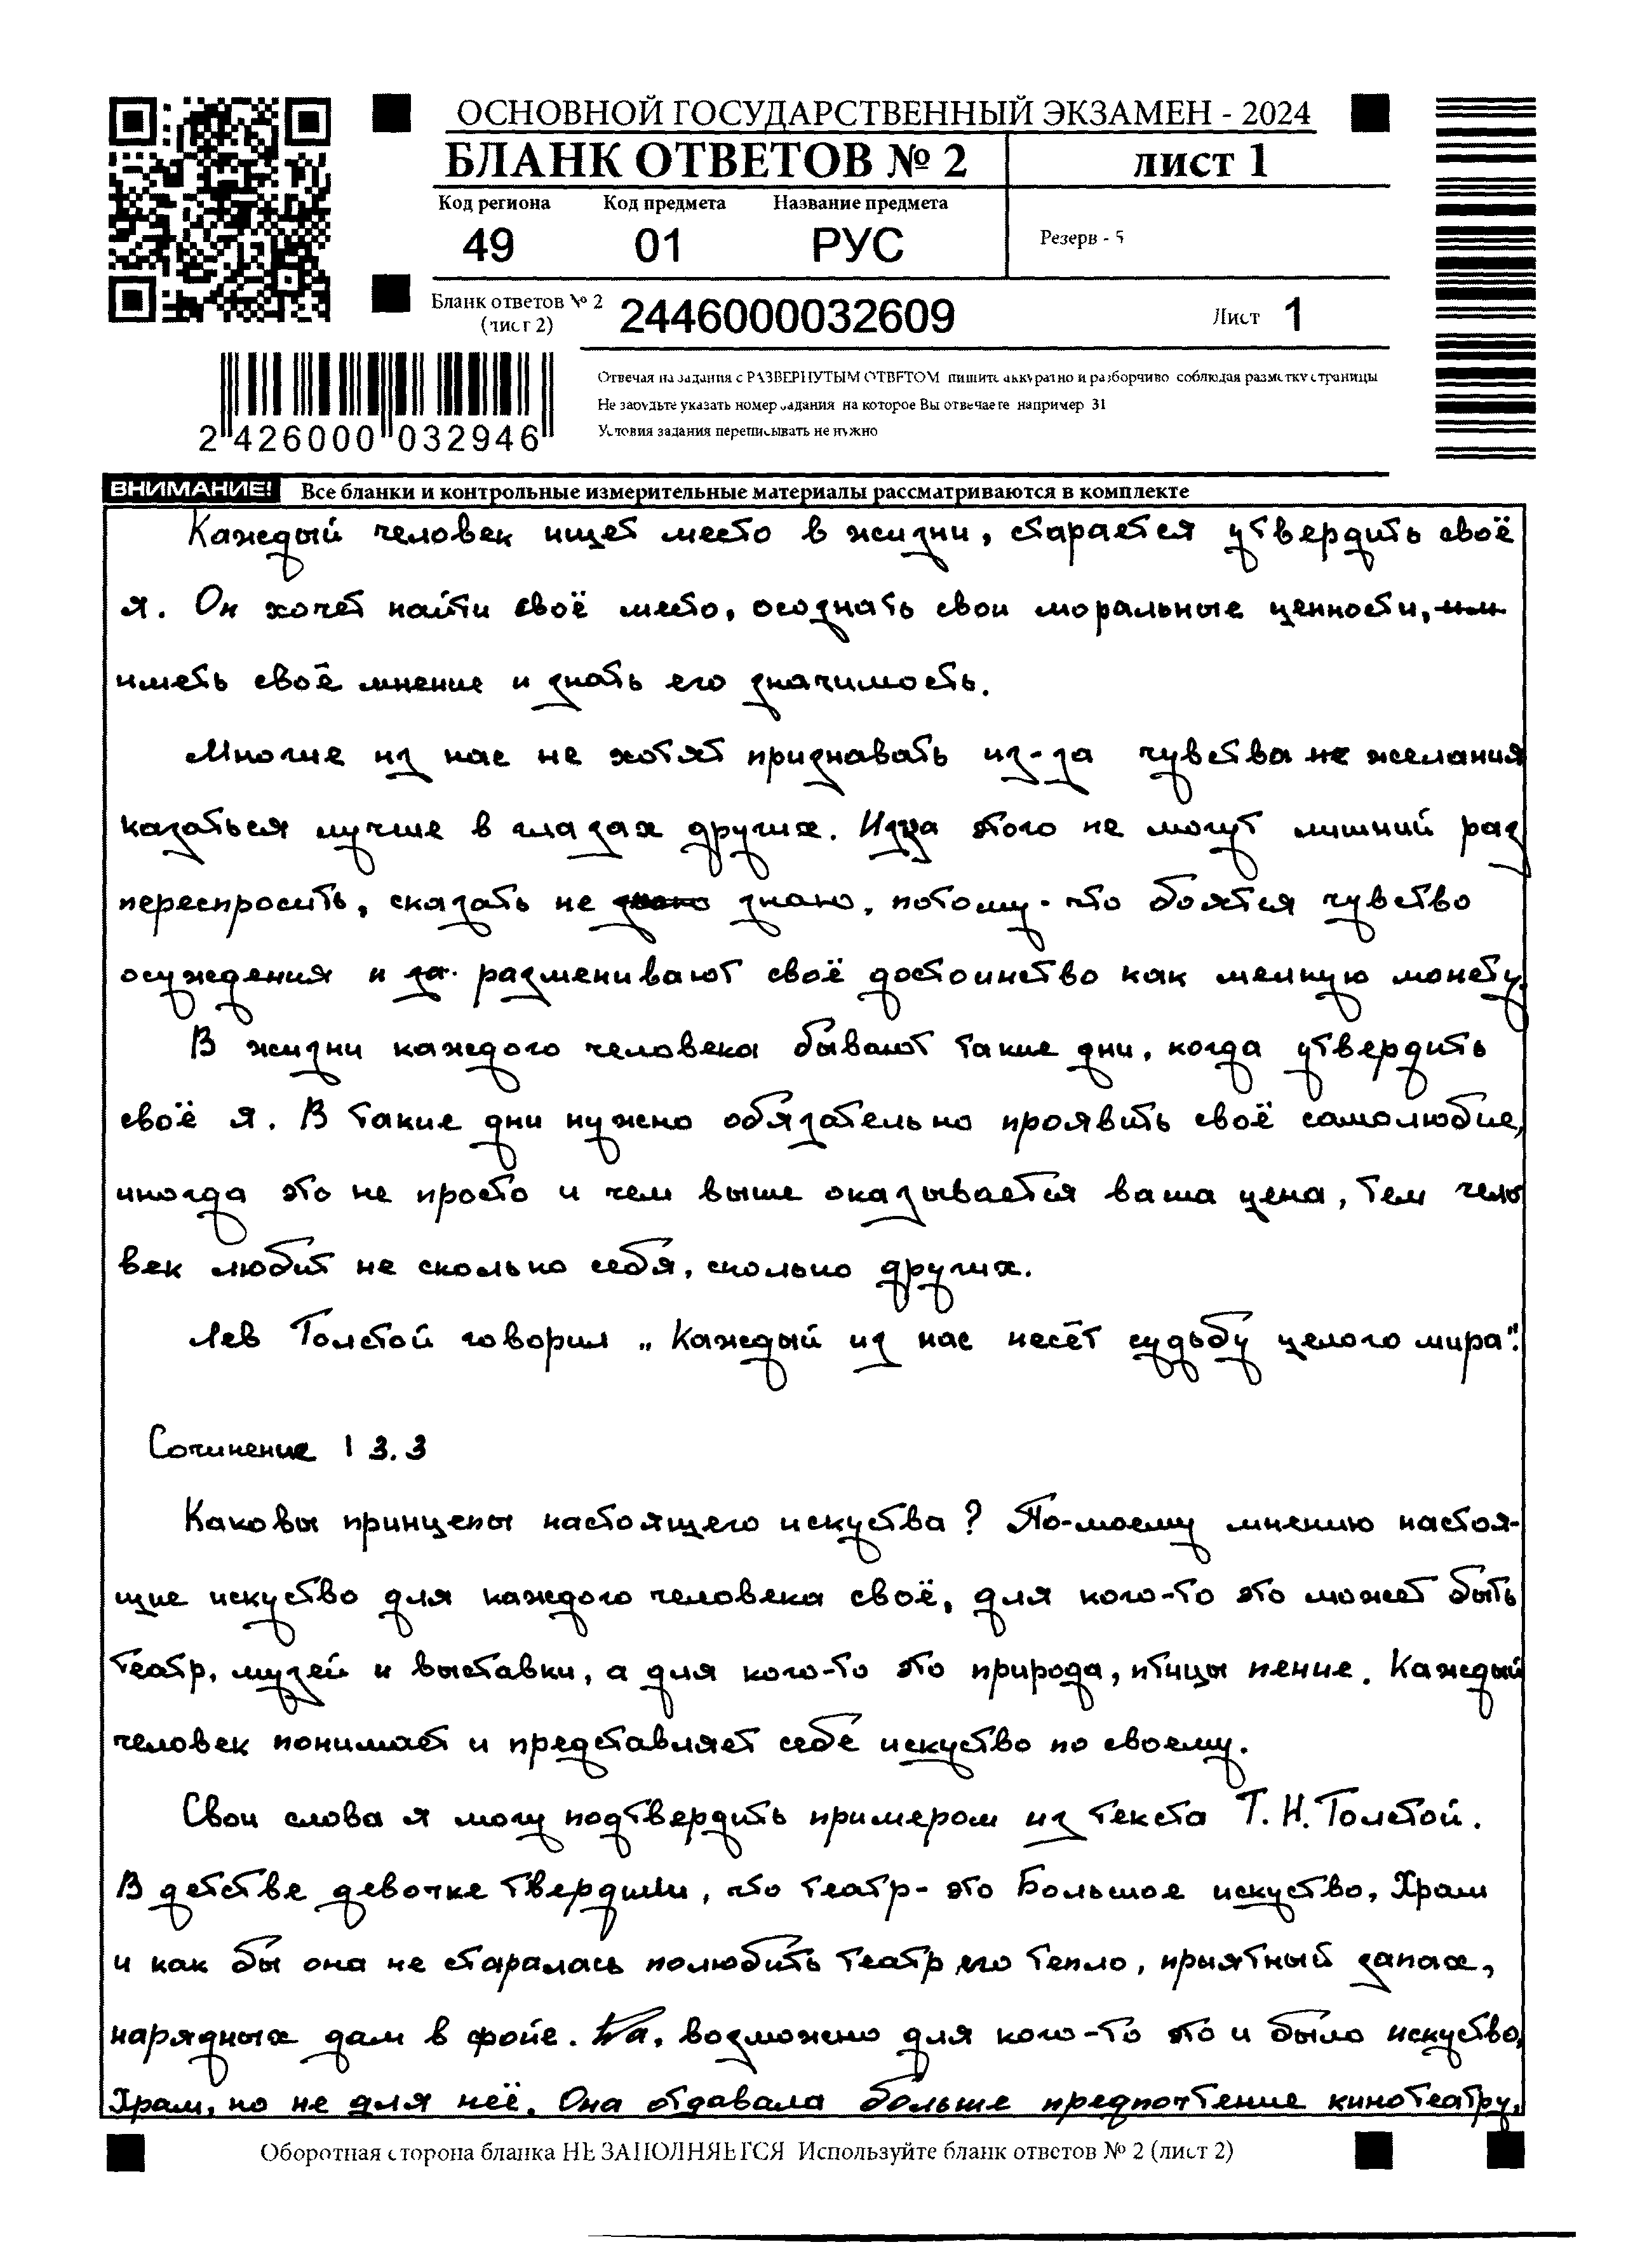 ОСНОВНОЙ ГОСУДАРСТВЕННЫЙ ЭКЗАМЕН - 2024
БЛАНК ОТВЕТОВ № 2
лист 1
Код региона
Код предмета
Название предмета
49
01
РУС
Резерв - 5
Бланк ответов № 2
(лист 2)
2446000032609
Лист 1
2 426000 032946
Отвечая на задания с РАЗВЕРНУТЫМ ОТВЕТОМ пишите аккуратно и разборчиво соблюдая разметку страницы
Не забудьте указать номер задания на которое Вы отвечаете например 31
Условия задания переписывать не нужно
ВНИМАНИЕ! Все бланки и контрольные измерительные материалы рассматриваются в комплекте
Каждый человек ищет место в жизни, старается утвердить своё
я. Он хочет найти своё место, осознать свои моральные ценности,
иметь своё мнение и знать его значимость.
Многие из нас не хотят признавать из-за чувства не желания
казаться лучше в глазах других. Изза этого не могут лишний раз
переспросить, сказать не знаю, потому-что боятся чувство
осуждения и разменивают своё достоинство как мелкую монету.
В жизни каждого человека бывают такие дни, когда утвердить
своё я. В такие дни нужно обязательно проявить своё самолюбие,
иногда это не просто и чем выше оказывается ваша цена, тем чело
век любит не сколько себя, сколько других.
Лев Толстой говорил „Каждый из нас несёт судьбу целого мира".
Сочинение 13.3
Каковы принцепы настоящего искуства? По-моему мнению настоя-
щие искуство для каждого человека своё, для кого-то это может быть
театр, музей и выставки, а для кого-то это природа, птицы пение. Каждый
человек понимает и представляет себе искуство по своему.
Свои слова я могу подтвердить примером из текста Т.Н.Толстой.
В детстве девочке твердили, что театр- это Большое искуство, Храм
и как бы она не старалась полюбить театр его тепло, приятный запах,
нарядных дам в фойе. возможно для кого-то это и было искуство,
Храм, но не для неё. Она отдавала больше предпочтение кинотеатру,
Оборотная сторона бланка НЕ ЗАПОЛНЯЕТСЯ Используйте бланк ответов № 2 (лист 2)